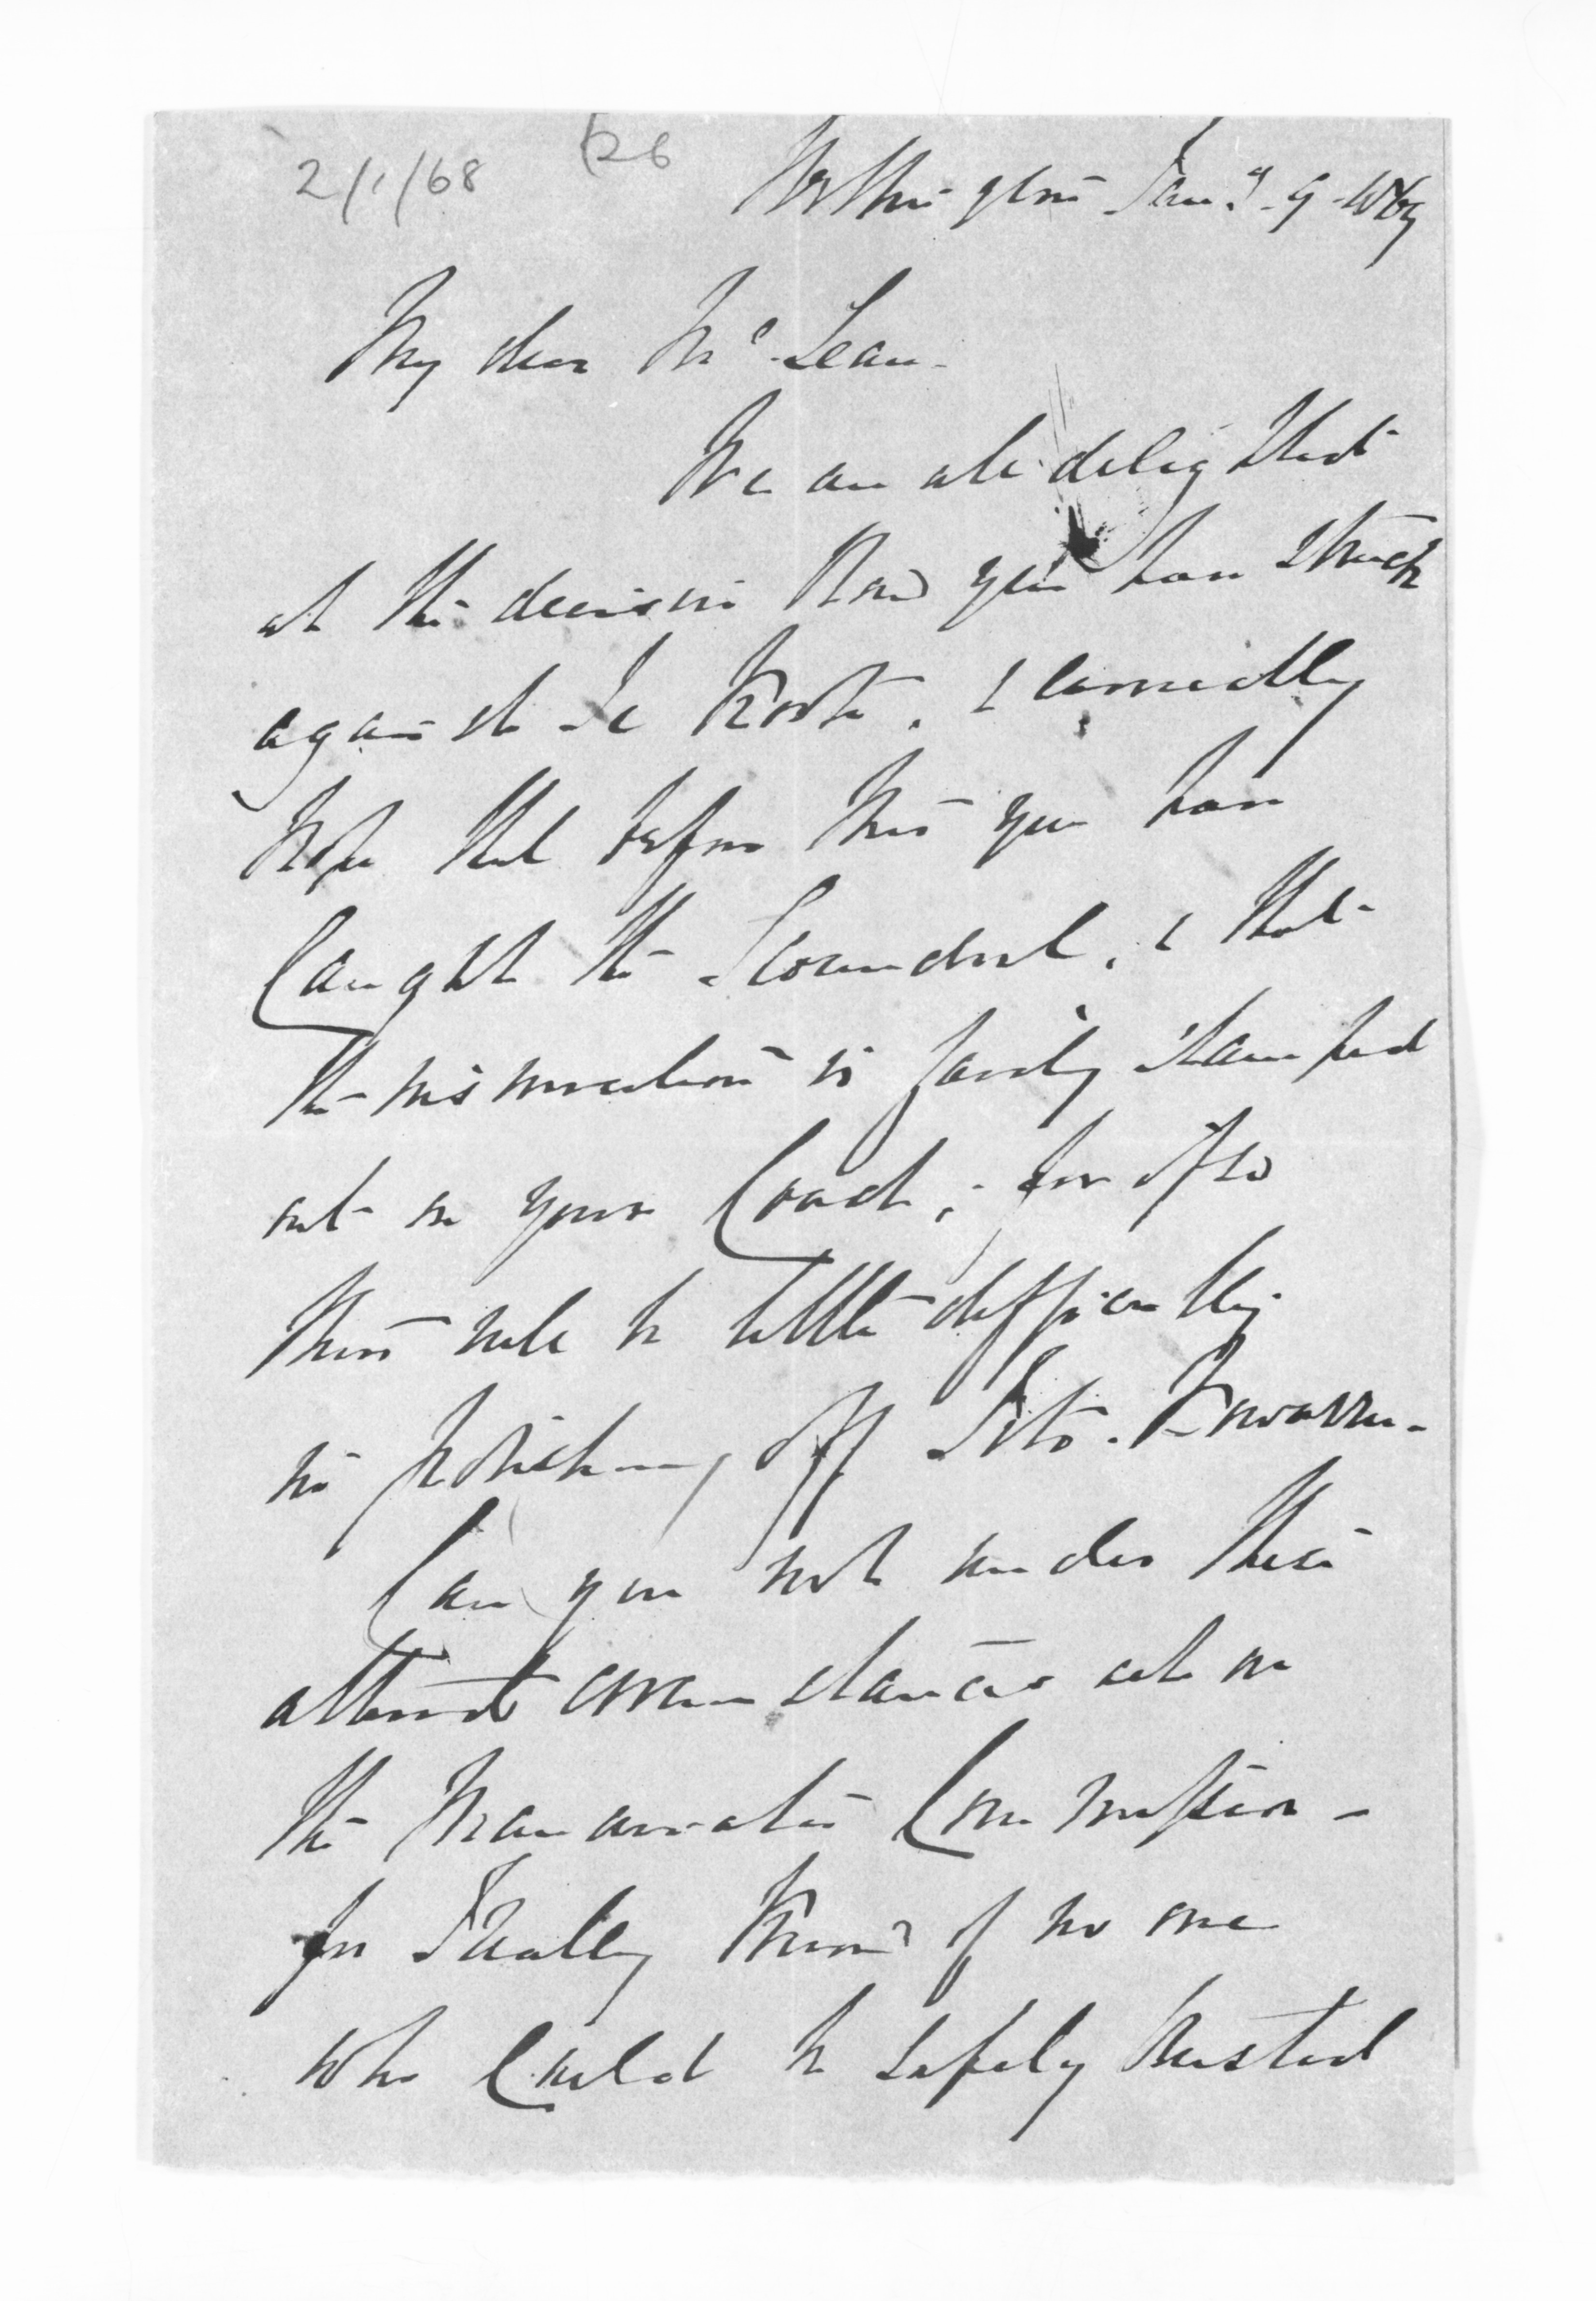 2/1/68 (26
Wellington Jany. 9 - 1869
My dear McLean -
We are all delighted
at the decisive blow you have struck
against Te Kooti, & earnestly
hope that before this you have
caught the Scoundrel, & that
the insurrection is fairly stamped
out on your Coast; for if so
there will be little difficulty
in polishing off Tito Kowaru -
Can you not under these
altered circumstances act on
the Manawatu Commission -
for I really know of no one
who could be safely trusted